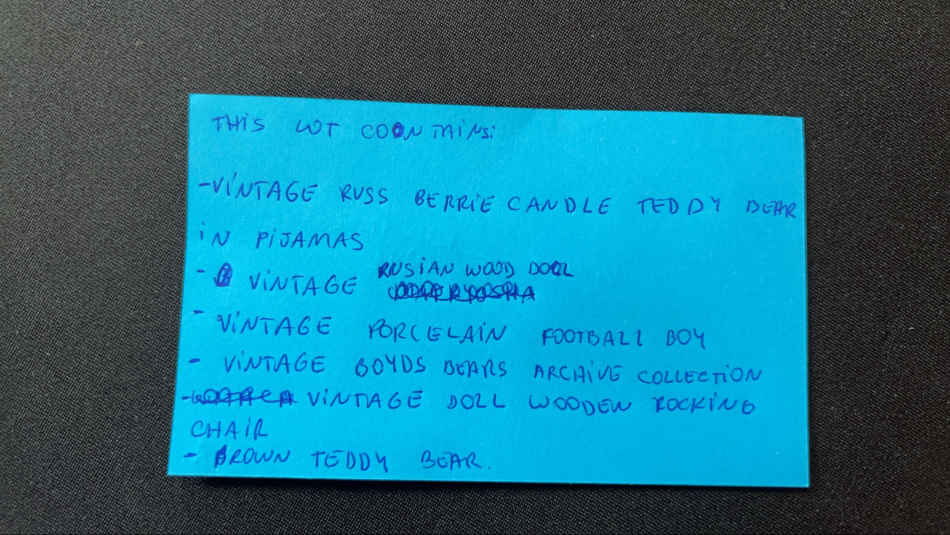 THIS LOT COONTAINS:
-VINTAGE RUSS BERRIE CANDLE TEDDY BEAR
IN PIJAMAS
- VINTAGE RUSIAN WOOD DOLL
- VINTAGE PORCELAIN FOOTBALL BOY
- VINTAGE BOYDS BEARS ARCHIVE COLLECTION
- VINTAGE DOLL WOODEN ROCKING
CHAIR
- BROWN TEDDY BEAR.